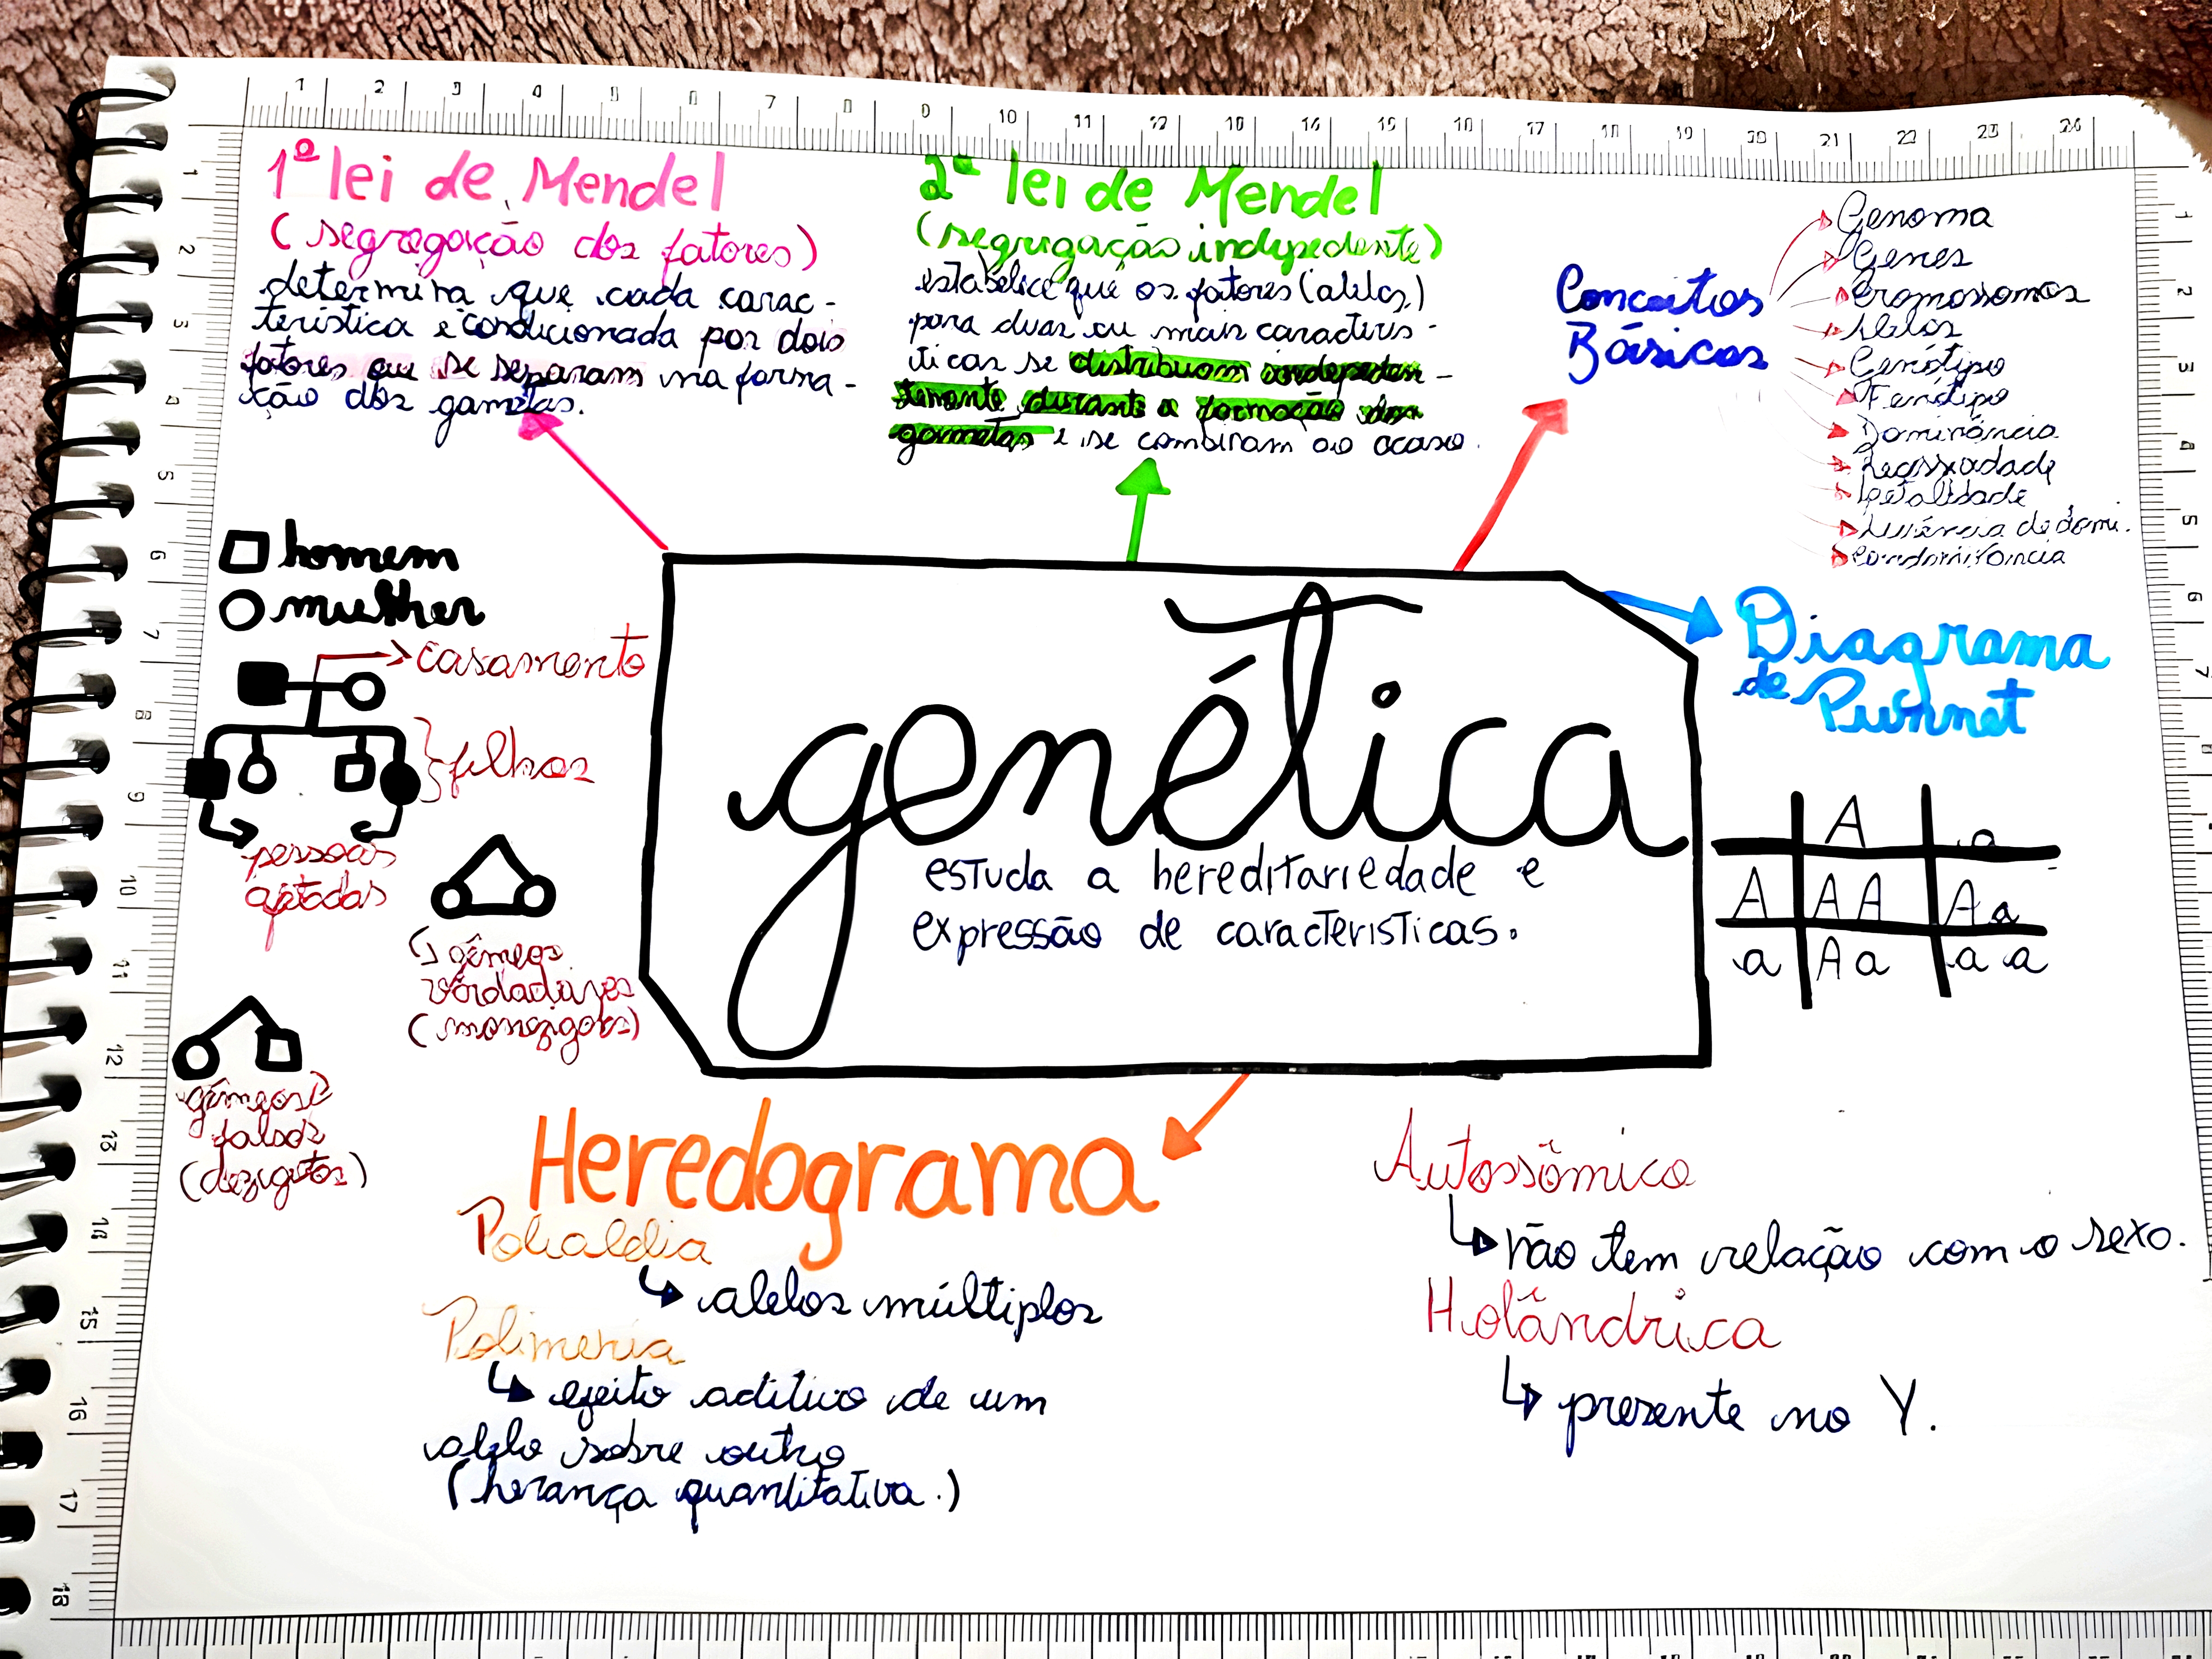 1ª lei de Mendel
(segregação dos fatores)
determina que cada carac-
terística é condicionada por dois
fatores que se separam na forma-
ção dos gametas.
2ª lei de Mendel
(segregação indepedente)
estabelece que os fatores (alelos)
para duas ou mais caracterís-
ticas se distribuem indepeden-
temente durante a formação dos
gametas e se combinam ao acaso.
Conceitos
Básicos
Genoma
Genes
Cromossomos
Alelos
Genótipo
Fenótipo
Dominância
Recessividade
Letalidade
Ausência de domi.
Codominância
homem
mulher
casamento
filhos
pessoas
afetadas
gêmeos
verdadeiros
(monozigotos)
gêmeos
falsos
(dizigotos)
genética
estuda a hereditariedade e
expressão de características.
Diagrama
de Punnet
A a
A AA Aa
a Aa aa
Heredograma
Polialelia
alelos múltiplos
Polimeria
efeito aditivo de um
alelo sobre outro
(herança quantitativa.)
Autossômico
não tem relação com o sexo.
Holândrica
presente no Y.